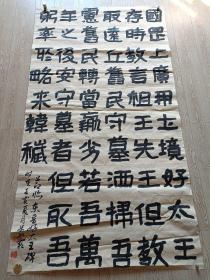 國罡上廣開土境好太王
存時教言祖王先王但教
取遠近舊民守墓洒掃吾
慮舊民轉當羸劣若吾萬
年之後安守墓者但取吾
躬率所略來韓穢